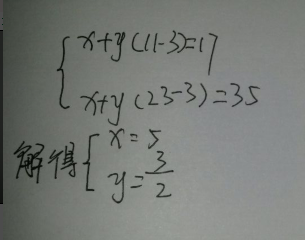 x+y(11-3)=17
x+y(23-3)=35
解得 x=5
y=3/2